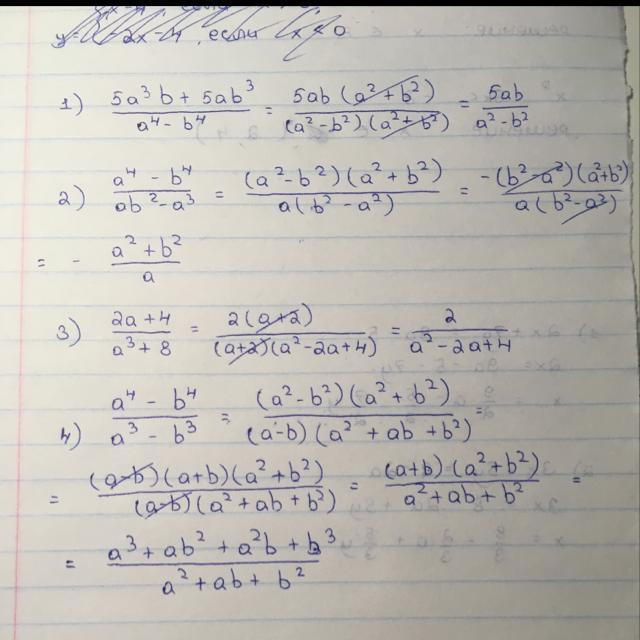 y = -2x-4, если x < 0
1) (5a³b + 5ab³)/(a⁴ - b⁴) = (5ab(a² + b²))/((a² - b²)(a² + b²)) = 5ab/(a² - b²)
2) (a⁴ - b⁴)/(ab² - a³) = ((a² - b²)(a² + b²))/(a(b² - a²)) = (-(b² - a²)(a² + b²))/(a(b² - a²))
= - (a² + b²)/a
3) (2a + 4)/(a³ + 8) = (2(a + 2))/((a + 2)(a² - 2a + 4)) = 2/(a² - 2a + 4)
4) (a⁴ - b⁴)/(a³ - b³) = ((a² - b²)(a² + b²))/((a - b)(a² + ab + b²)) =
= ((a - b)(a + b)(a² + b²))/((a - b)(a² + ab + b²)) = ((a + b)(a² + b²))/(a² + ab + b²) =
= (a³ + ab² + a²b + b³)/(a² + ab + b²)